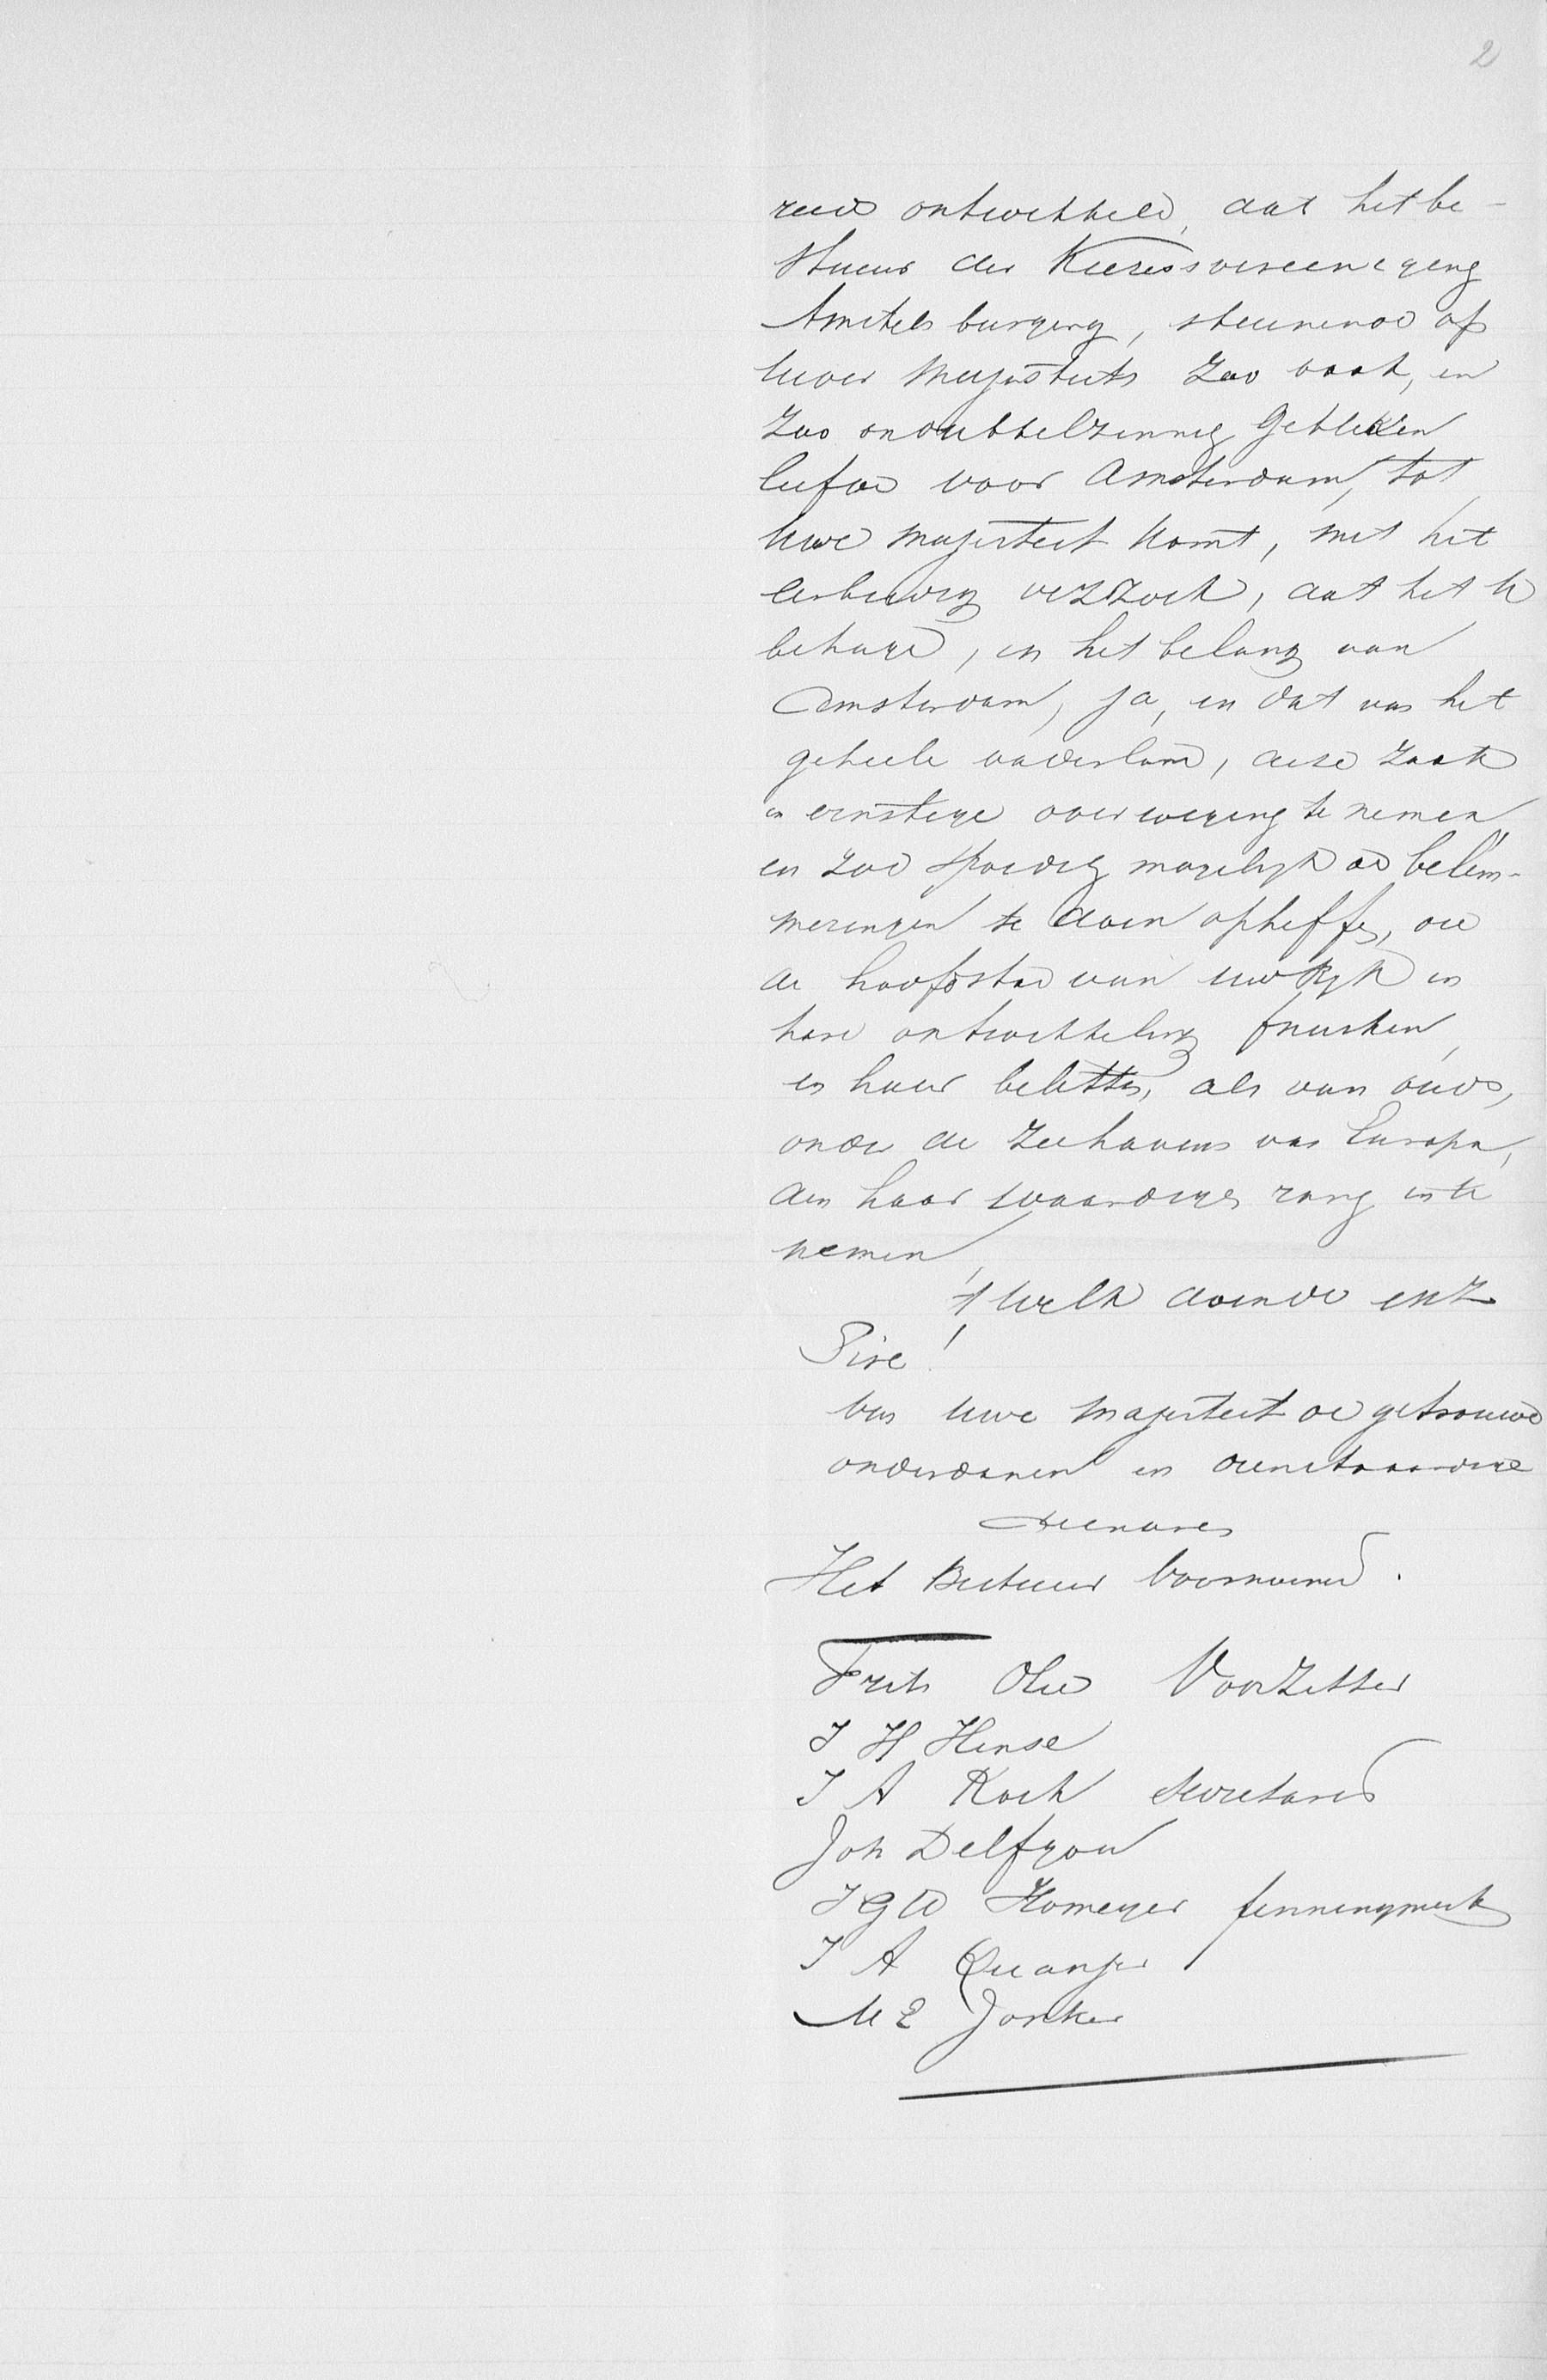 2
reeds ontwikkeld, dat het be-
stuur der Kiesvereeniging
Amstels burgerij, steunende op
Uwer Majesteits zoo vaak, en
zoo ondubbelzinnig gebleken
liefde voor Amsterdam, tot
Uwe Majesteit komt, met het
eerbiedig verzoek, dat het U
behage, in het belang van
Amsterdam, ja, in dat van het
geheele vaderland, deze zaak
in ernstige overweging te nemen
en zoo spoedig mogelijk de belem-
meringen te doen opheffen, die
de hoofdstad van uw Rijk in
hare ontwikkeling fnuiken
en haar beletten, als van ouds,
onder de zeehavens van Europa,
den haar waardigen rang in te
nemen
't Welk doende enz
Sire!
Van Uwe Majesteit de getrouwe
onderdanen en
dienaren
Het Bestuur voornoemd.
Frits Olie Voorzitter
J H Hense
J A Koch Secretaris
Joh Delfgou
J G W Homeyer penningmeester
J A Quanjer
M E Jonker